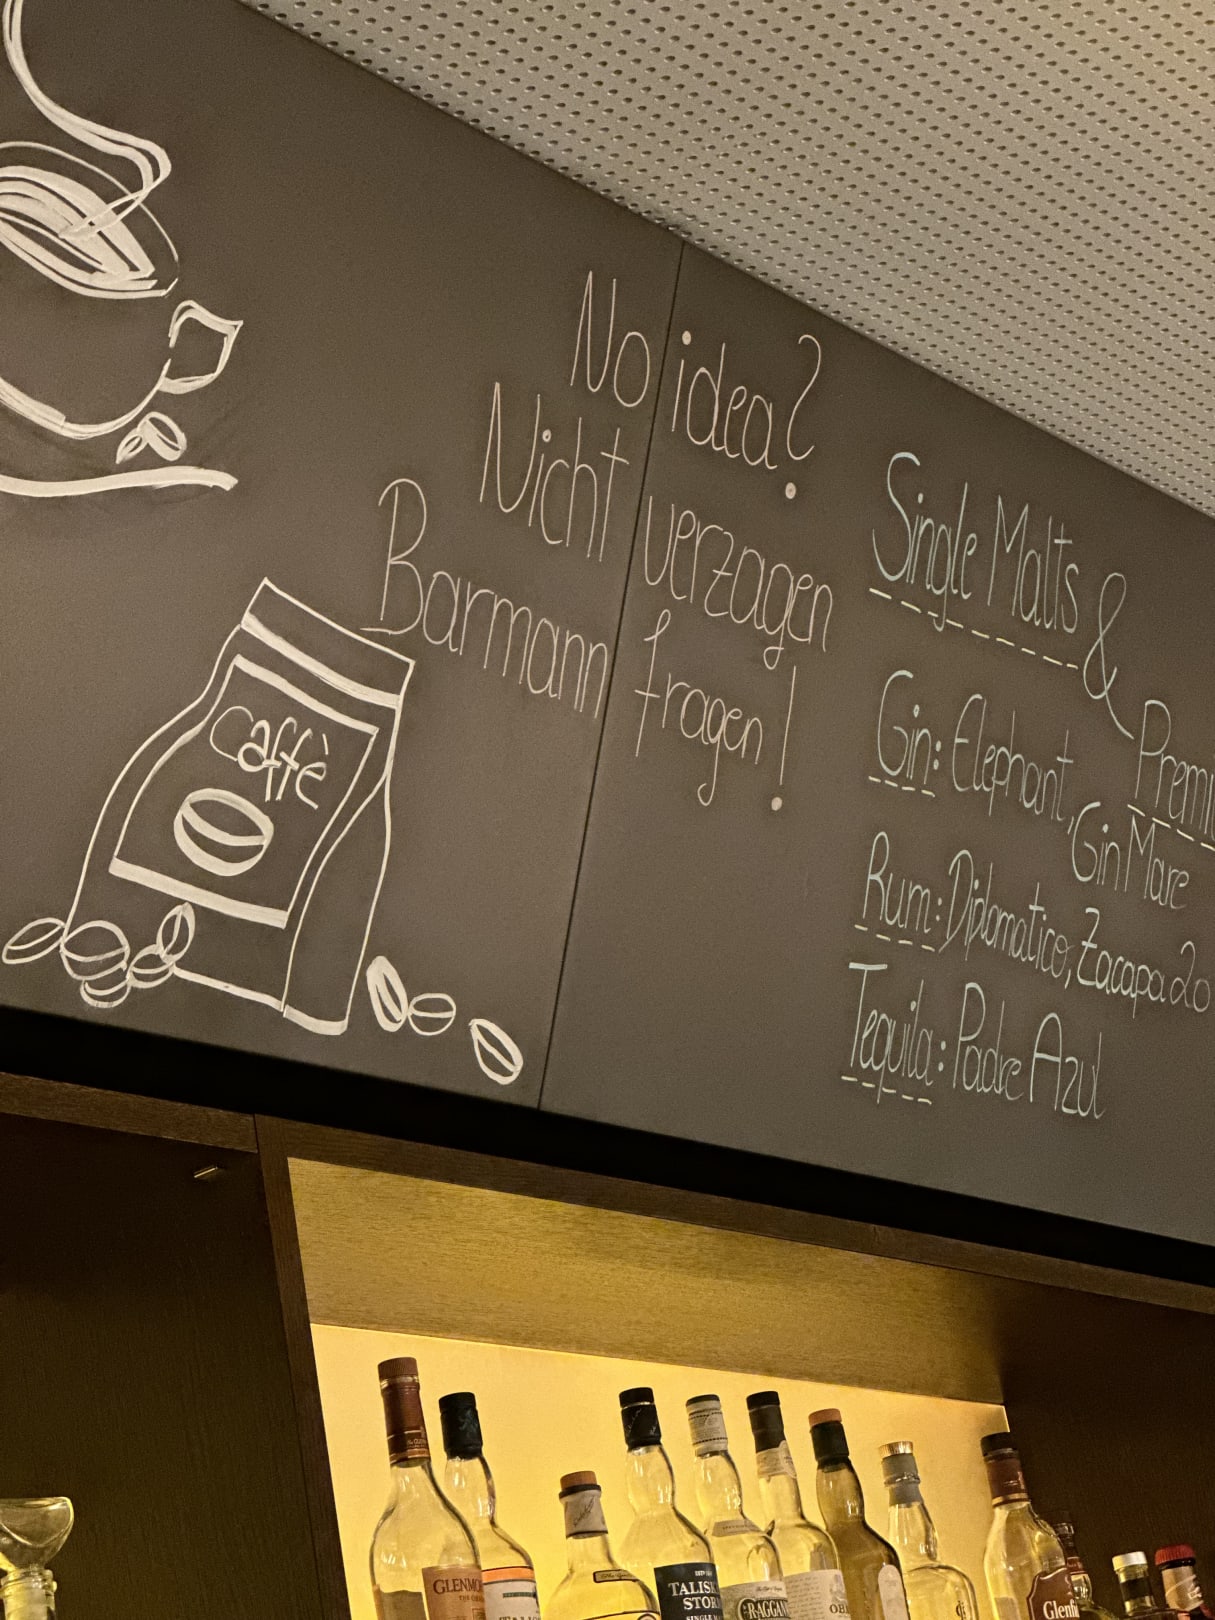 No idea?
Nicht verzagen
Barmann fragen!
Caffè
Single Malts &
Gin: Elephant, Gin Mare
Rum: Diplomatico, Zacapa 20
Tequila: Padre Azul
GLENMO
TALIS
STOR
SINGLE M
CRAGGAN
OB
Glenfi